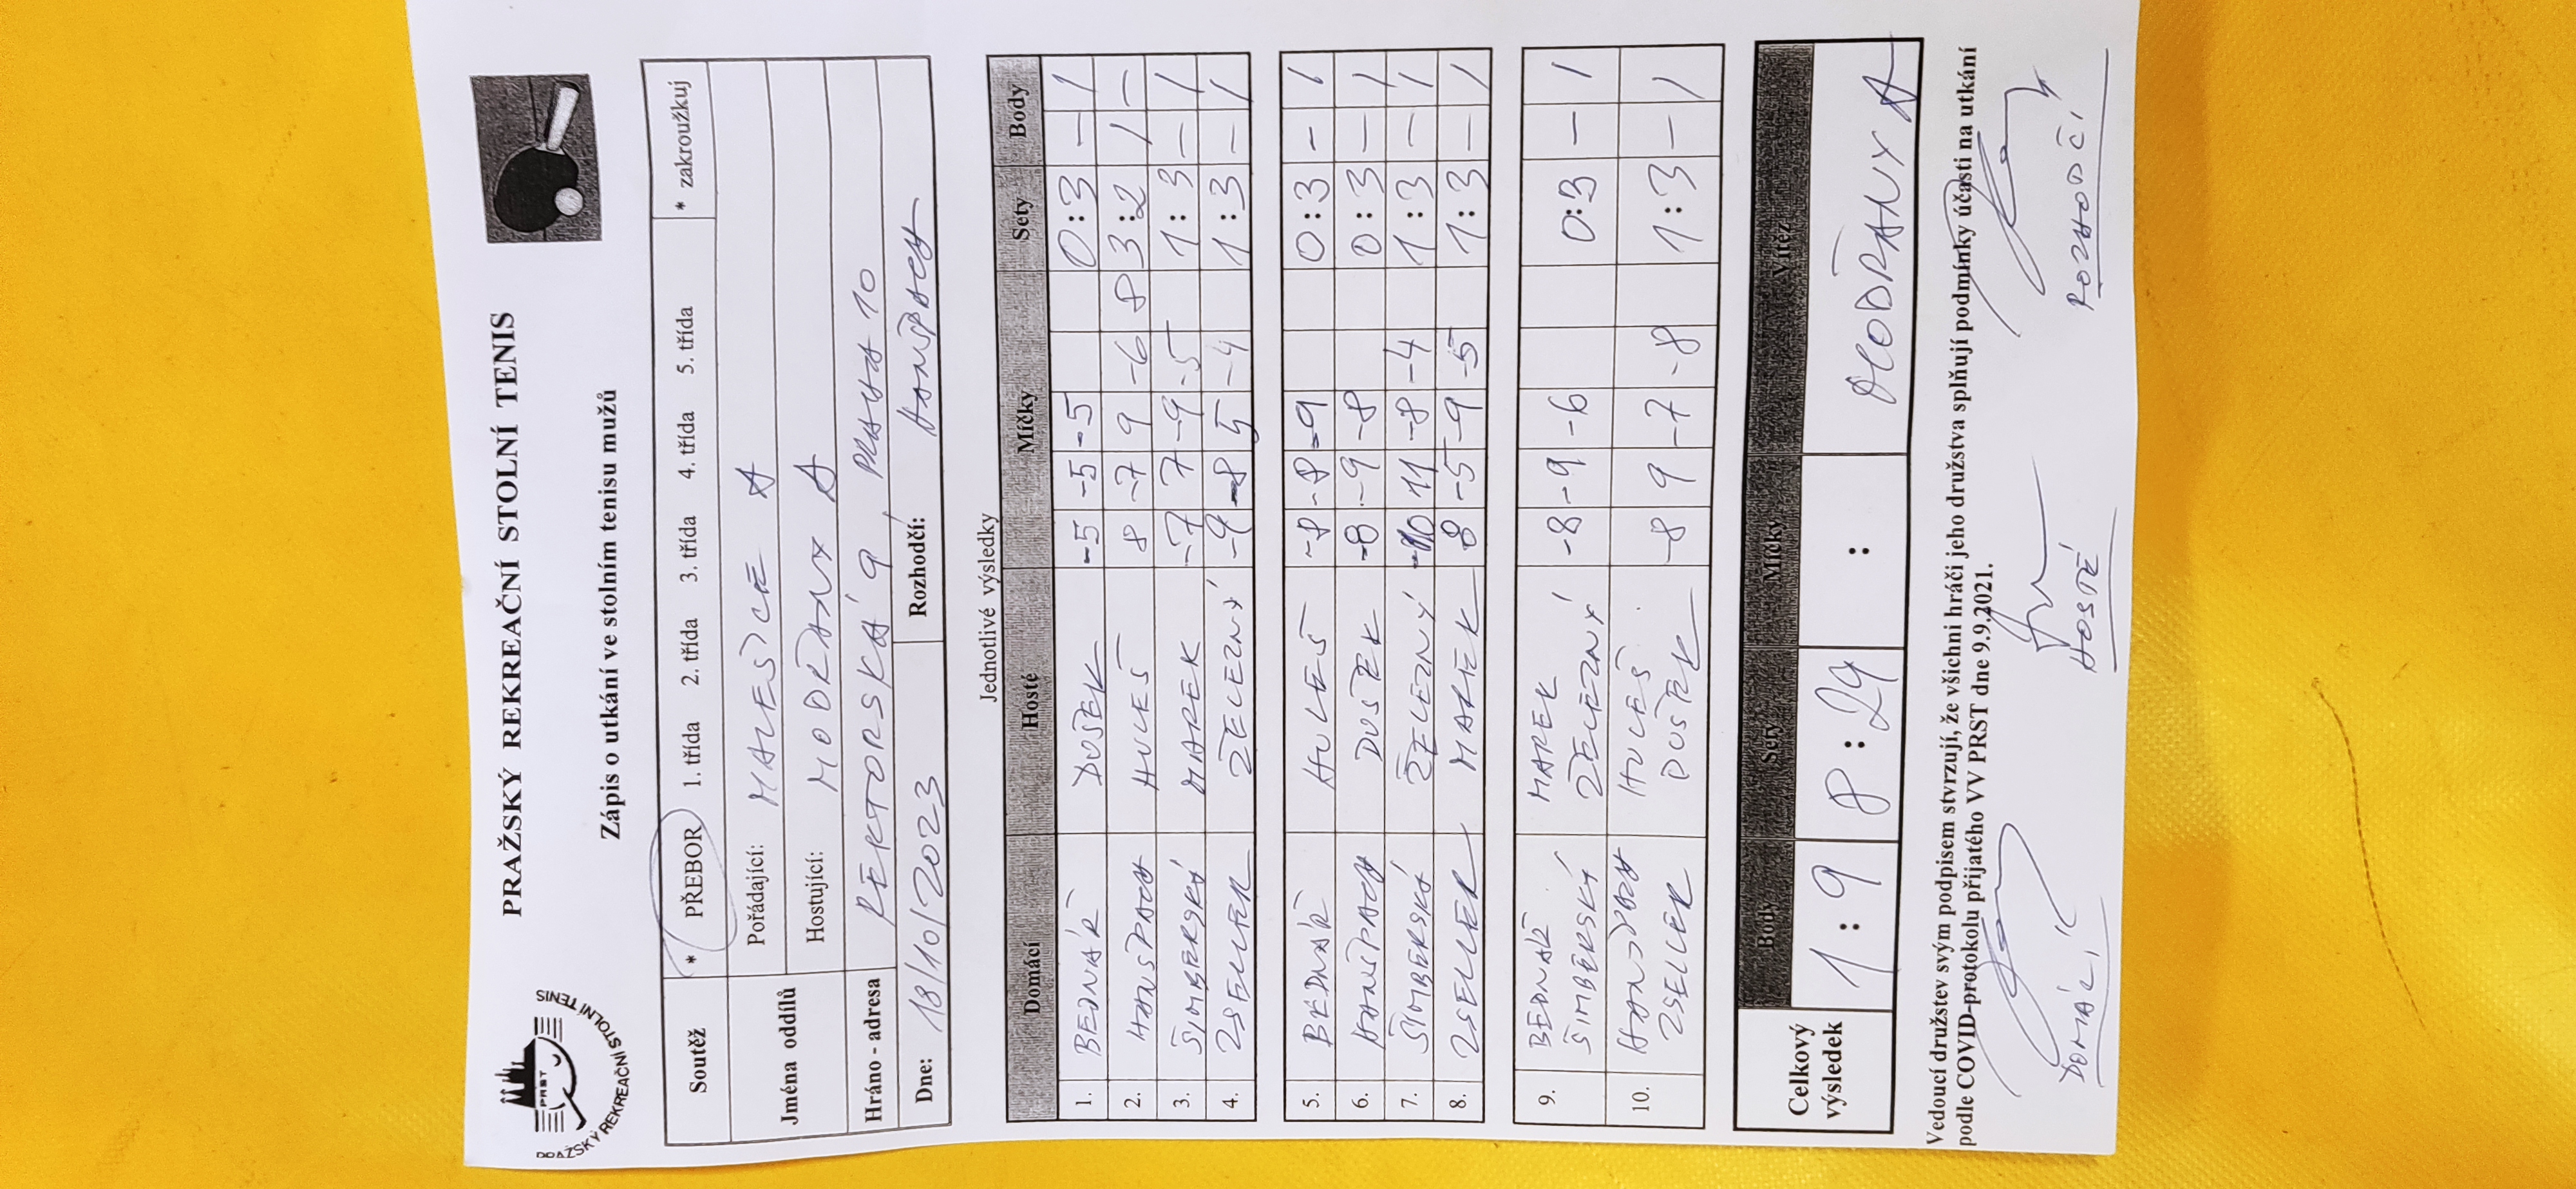 PRAŽSKÝ REKREAČNÍ STOLNÍ TENIS
PRST
PRAŽSKÝ REKREAČNÍ STOLNÍ TENIS
Zápis o utkání ve stolním tenisu mužů
Soutěž * PŘEBOR 1. třída 2. třída 3. třída 4. třída 5. třída * zakroužkuj
Jména oddílů Pořádající: MALEŠICE A
Hostující: MODŘANY A
Hráno - adresa REKTORSKÁ 9, PRAHA 10
Dne: 18/10/2023 Rozhodčí: HANŠPACH
Jednotlivé výsledky
Domácí Hosté Míčky Sety Body
1. BEDNÁŘ DUŠEK -5 -5 -5 0:3 — /
2. HANŠPACH HULEŠ 8 -7 9 -6 8 3:2 / —
3. ŠIMBERSKÝ MAREK -7 7 -9 -5 1:3 — /
4. ZSELLER ŽELEZNÝ -9 -8 5 -4 1:3 — /
5. BEDNÁŘ HULEŠ -8 -8 -9 0:3 — /
6. HANŠPACH DUŠEK -8 -9 -8 0:3 — /
7. ŠIMBERSKÝ ŽELEZNÝ -10 11 -8 -4 1:3 — /
8. ZSELLER MAREK 8 -5 -9 -5 1:3 — /
9. BEDNÁŘ MAREK -8 -9 -6 0:3 — /
ŠIMBERSKÝ ŽELEZNÝ
10. HANŠPACH HULEŠ -8 9 -7 -8 1:3 — /
ZSELLER DUŠEK
Celkový výsledek Body Sety Míčky Vítěz
1 : 9 8 : 29 : MODŘANY A
Vedoucí družstev svým podpisem stvrzují, že všichni hráči jeho družstva splňují podmínky účasti na utkání
podle COVID-protokolu přijatého VV PRST dne 9.9.2021.
DOMÁCÍ HOSTÉ ROZHODČÍ